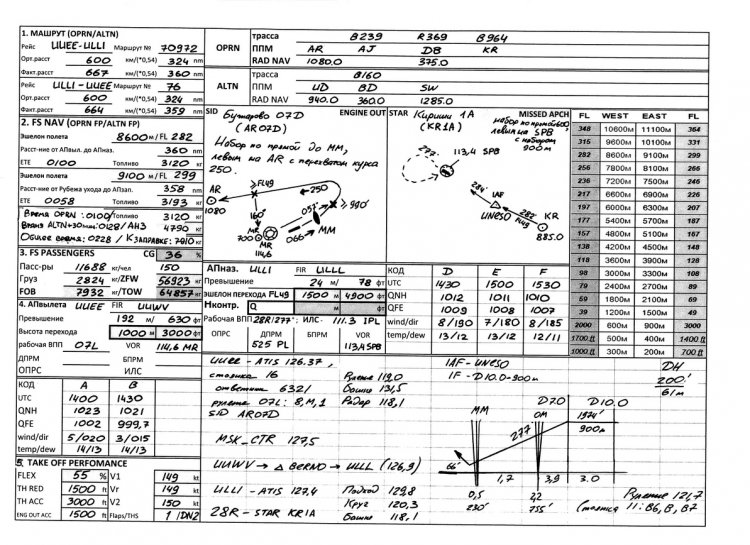 1. МАШРУТ (OPRN/ALTN)
Рейс UUEE-ULLI Маршрут № 70972
Орт.расст 600 км/(*0,54) 324 nm
Факт.расст 667 км/(*0,54) 360 nm
Рейс ULLI - UUEE Маршрут № 76
Орт.расст 600 км/(*0,54) 324 nm
Факт.расст 664 км/(*0,54) 359 nm
OPRN
трасса B239 R369 B964
ППМ AR AJ DB KR
RAD NAV 1080.0 375.0
ALTN
трасса B160
ППМ UD BD SW
RAD NAV 940.0 360.0 1285.0
2. FS NAV (OPRN FP/ALTN FP)
Эшелон полета 8600 м/FL 282
Расст-ние от АПвыл. до АПназ. 360 nm
ETE 0100 Топливо 3120 кг
Эшелон полета 9100 м/FL 299
Расст-ние от Рубежа ухода до АПзап. 358 nm
ETE 0058 Топливо 3193 кг
Время OPRN : 0100/Топливо 3120 кг
Время ALTN+30мин: 0128/АНЗ 4790 кг
Общее время: 0228 / К ЗАПРАВКЕ: 7910 кг
3. FS PASSENGERS CG 36 %
Пасс-ры 11688 кг/чел 150
Груз 2824 кг/ZFW 56923 кг
FOB 7932 кг/TOW 64857 кг
4. АПвылета UUEE FIR UUWV
Превышение 192 м/ 630 фт
Высота перехода 1000 м 3000 фт
рабочая ВПП 07L VOR 114,6 MR
ДПРМ БПРМ
ОПРС ИЛС
КОД A B
UTC 1400 1430
QNH 1023 1021
QFE 1002 999,7
wind/dir 5/020 3/015
temp/dew 14/13 14/13
5. TAKE OFF PERFOMANCE
FLEX 55 % V1 149 kt
TH RED 1500 ft Vr 149 kt
TH ACC 3000 ft V2 150 kt
ENG OUT ACC 1500 ft Flaps/THS 1 /DN2
SID Бужарово 07D ENGINE OUT
(AR07D)
Набор по прямой до ММ,
левым на AR с перехватом курса
250.
AR FL49 250
1080 160° 057° 990'
MR 700 MR 066 MM
114,6
STAR Кириши 1А MISSED APCH
(KR1A) набор по прямой 600,
левым на SPB
с набором
900м
277° 113,4 SPB
284° IAF
UNESO 282° FL49 KR
885.0
FL WEST EAST FL
348 10600м 11100м 364
315 9600м 10100м 331
282 8600м 9100м 299
256 7800м 8100м 266
236 7200м 7500м 246
217 6600м 6900м 227
197 6000м 6300м 207
177 5400м 5700м 187
157 4800м 5100м 167
138 4200м 4500м 148
118 3600м 3900м 128
98 3000м 3300м 108
79 2400м 2700м 89
59 1800м 2100м 69
39 1200м 1500м 49
2000 600м 900м 3000
1700 ft 500м 400м 1400 ft
1000 ft 300м 200м 700 ft
АПназ. ULLI FIR ULLL
Превышение 24 м/ 78 фт
ЭШЕЛОН ПЕРЕХОДА FL49 1500 м 4900 фт
Нконтр. Q м фт
Рабочая ВПП 28R 277°: ИЛС- 111.3 IPL
ОПРС ДПРМ БПРМ VOR
525 PL 113,4 SPB
КОД D E F
UTC 1430 1500 1530
QNH 1012 1011 1010
QFE 1009 1008 1007
wind/dir 8/190 7/180 8/185
temp/dew 13/12 13/12 12/11
UUEE - ATIS 126.37,
стоянка 16 Руление 119,0
ответчик 6321 Башня 131,5
рулежка 07L: 8,M,1 Радар 118,1
SID AR07D
MSK_CTR 127,5
UUWV → △ BERNO → ULLL (126,9)
ULLI - ATIS 127,4 Подход 129,8
Круг 120,3
28R - STAR KR1A Башня 118,1
IAF - UNESO
IF - D10.0 - 900м
DH
200'
61м
D7.0 D10.0
MM OM 1974'
277 900м
66'
1,7 3,9 3.0
0,5 2,2
230' 755'
Руление 121,7
(стоянка 11: B6, B, B7